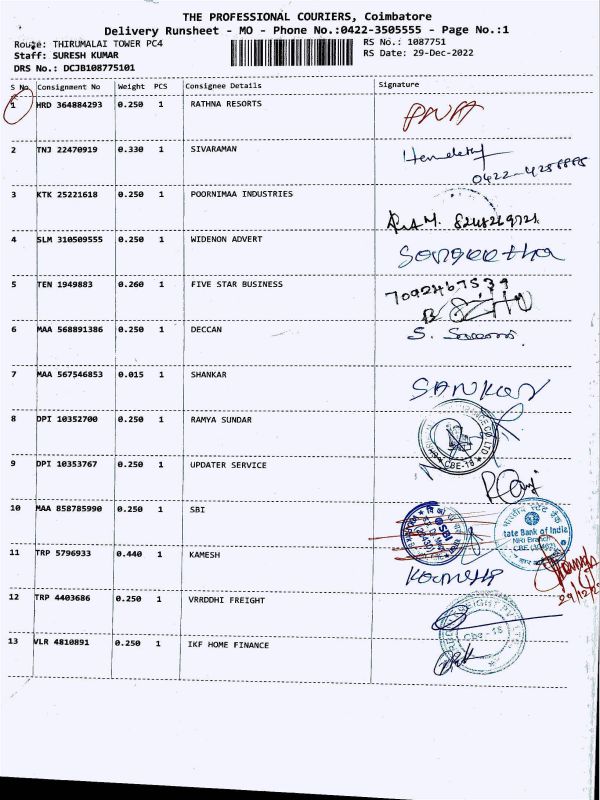 THE PROFESSIONAL COURIERS, Coimbatore
Delivery Runsheet - MO - Phone No.:0422-3505555 - Page No.:1
Route: THIRUMALAI TOWER PC4
Staff: SURESH KUMAR
DRS No.: DCJB108775101
RS No.: 1087751
RS Date: 29-Dec-2022
S No. Consignment No Weight PCS Consignee Details Signature
1 HRD 364884293 0.250 1 RATHNA RESORTS
2 TNJ 22470919 0.330 1 SIVARAMAN
3 KTK 25221618 0.250 1 POORNIMAA INDUSTRIES
4 SLM 310509555 0.250 1 WIDENON ADVERT Sangeetha
5 TEN 1949883 0.260 1 FIVE STAR BUSINESS
6 MAA 568891386 0.250 1 DECCAN
7 MAA 567546853 0.015 1 SHANKAR SANKAR
8 DPI 10352700 0.250 1 RAMYA SUNDAR
CBE-18
9 DPI 10353767 0.250 1 UPDATER SERVICE
10 MAA 858785990 0.250 1 SBI
SBI
State Bank of India
NRI Branch
11 TRP 5796933 0.440 1 KAMESH
12 TRP 4403686 0.250 1 VRRDDHI FREIGHT
Cbe-18
13 VLR 4810891 0.250 1 IKF HOME FINANCE